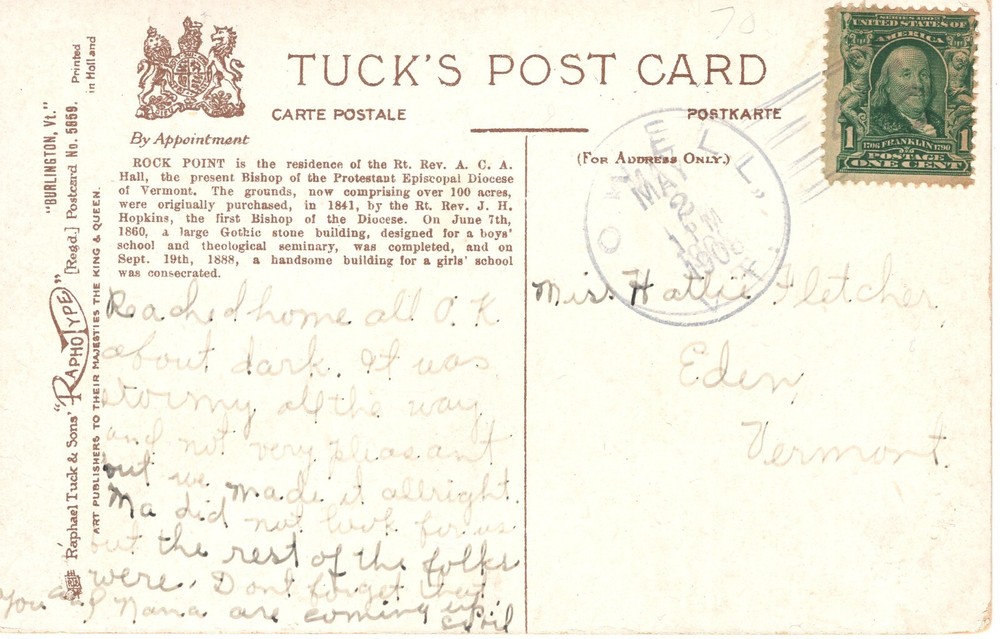 TUCK'S POST CARD
CARTE POSTALE
POSTKARTE
By Appointment
(FOR ADDRESS ONLY.)
ROCK POINT is the residence of the Rt. Rev. A. C. A.
Hall, the present Bishop of the Protestant Episcopal Diocese
of Vermont. The grounds, now comprising over 100 acres,
were originally purchased, in 1841, by the Rt. Rev. J. H.
Hopkins, the first Bishop of the Diocese. On June 7th,
1860, a large Gothic stone building, designed for a boys'
school and theological seminary, was completed, and on
Sept. 19th, 1888, a handsome building for a girls' school
was consecrated.
Reached home all O. K
about dark. It was
stormy all the way
and not very pleasant
but we made it allright.
Ma did not look for us
but the rest of the folks
were. Dont forget that
You and Nana are coming up.
Miss. Hattie Fletcher
Eden,
Vermont.
Raphael Tuck & Sons' "RAPHOTYPE" [Regd.] Postcard No. 5859.
"BURLINGTON, Vt."
Printed
in Holland
ART PUBLISHERS TO THEIR MAJESTIES THE KING & QUEEN.
SERIES 1902
UNITED STATES OF
AMERICA
1706 FRANKLIN 1790
1 1
POSTAGE
ONE CENT
MAY
2
1 PM
VT.